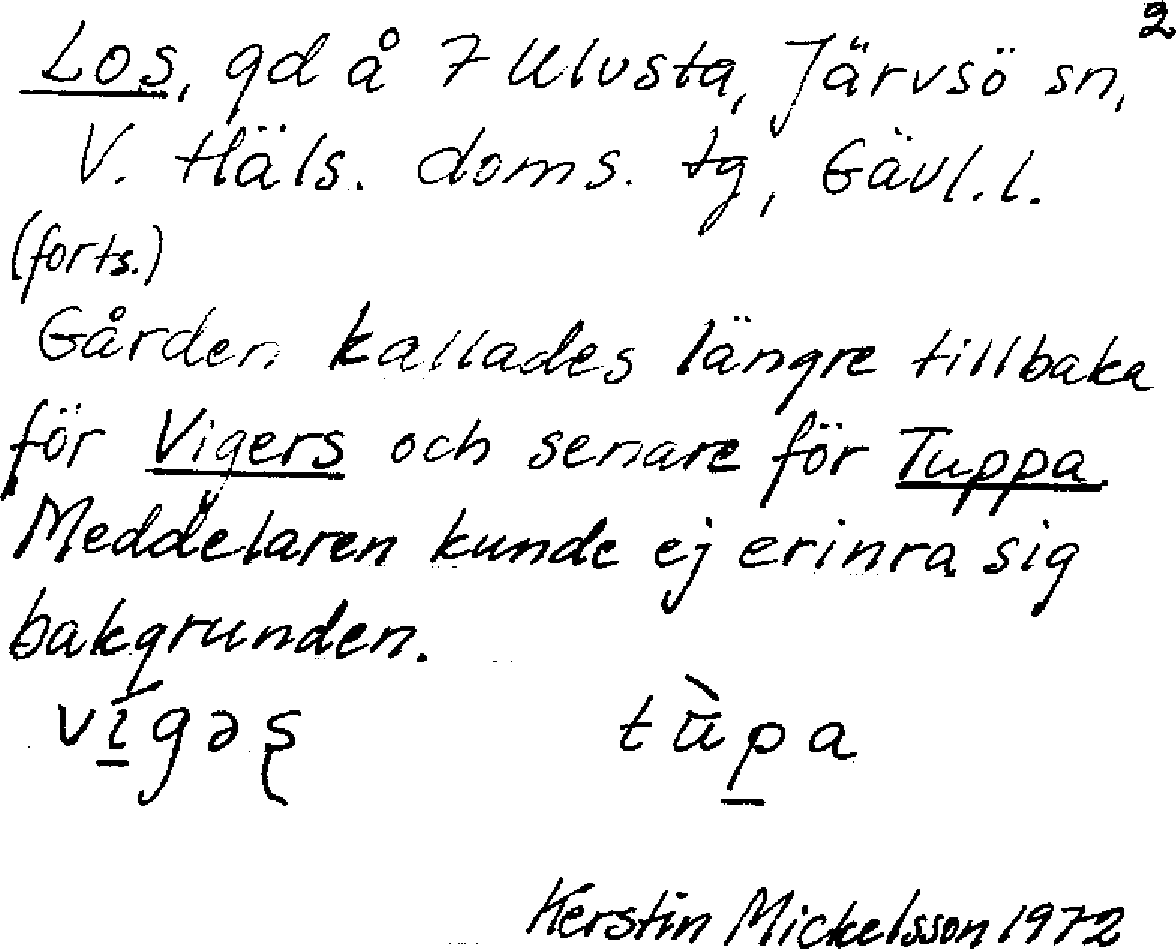 2
Los, gd å 7 Ulvsta, Järvsö sn,
V. Häls. doms. tg, Gävl. l.
(forts.)
Gården kallades längre tillbaka
för Vigers och senare för Tuppa
Meddelaren kunde ej erinra sig
bakgrunden.
vígəʂ tùpa
Kerstin Mickelsson 1972